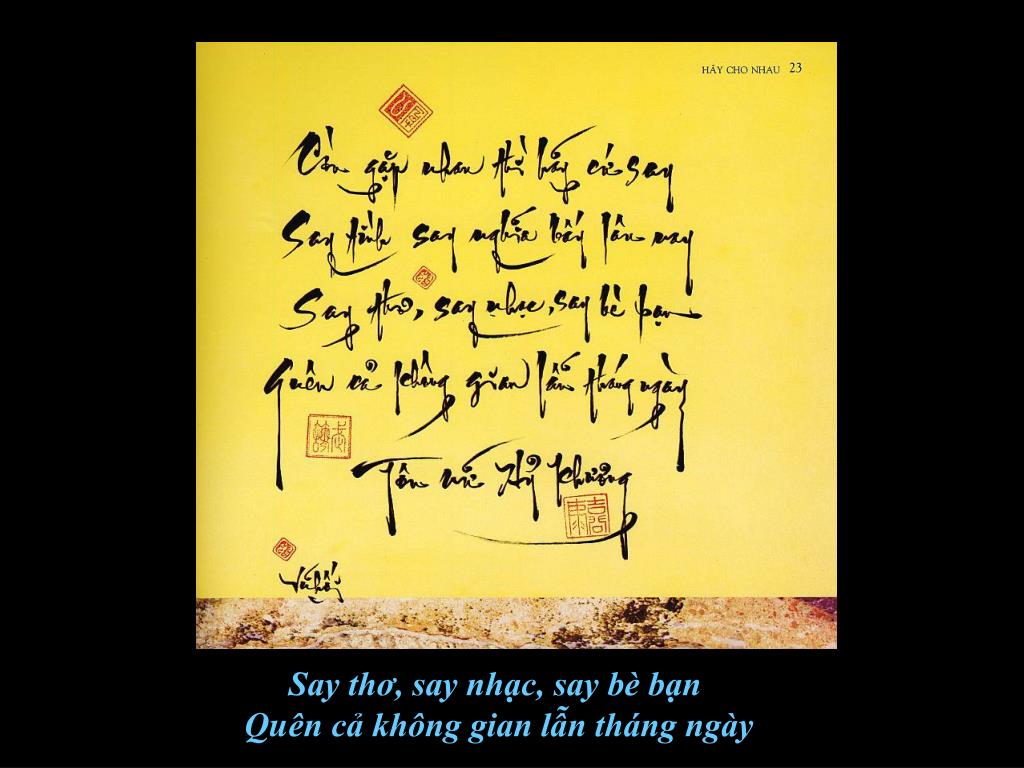 HÃY CHO NHAU 23
Còn gặp nhau thì hãy cứ say
Say tình say nghĩa bấy lâu nay
Say thơ, say nhạc, say bè bạn
Quên cả không gian lẫn tháng ngày
Tôn nữ Hỷ Khương
Say thơ, say nhạc, say bè bạn
Quên cả không gian lẫn tháng ngày